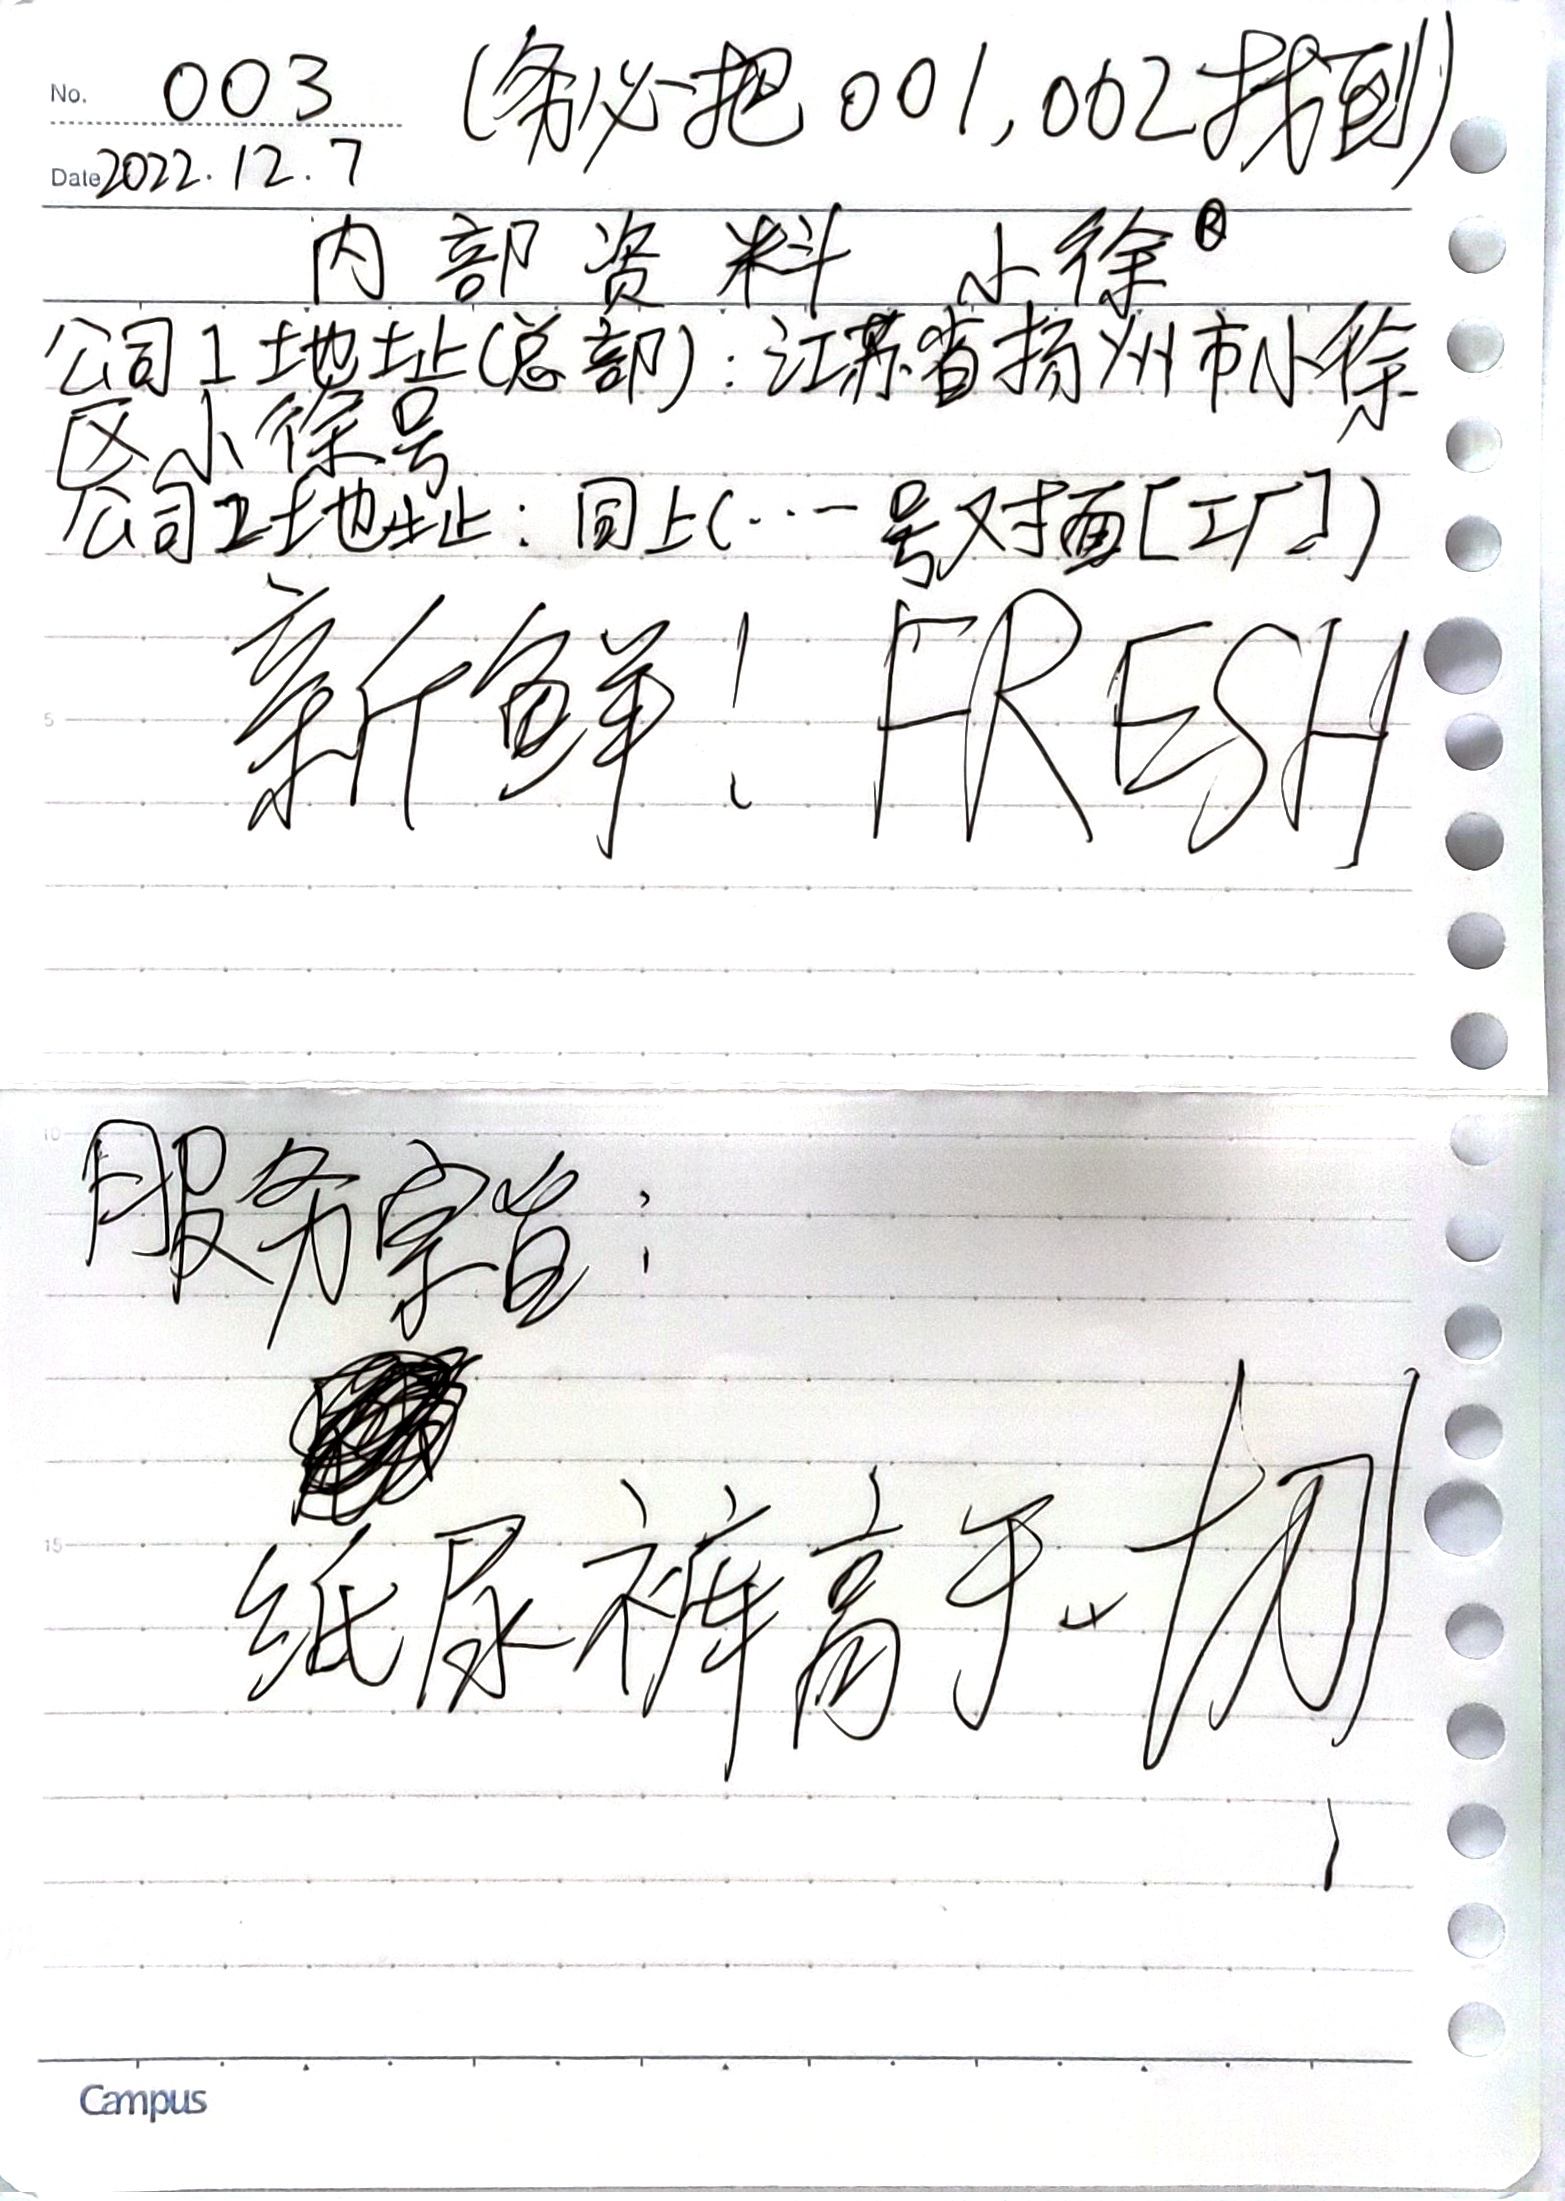 No. 003 (务必把001,002找到)
Date 2022.12.7
内部资料 小徐®
公司1地址(总部):江苏省扬州市小徐
区小徐号
公司2地址:同上(…一号对面[工厂])
新鲜! FRESH
5
10
服务宗旨:
15
纸尿裤高于一切
Campus